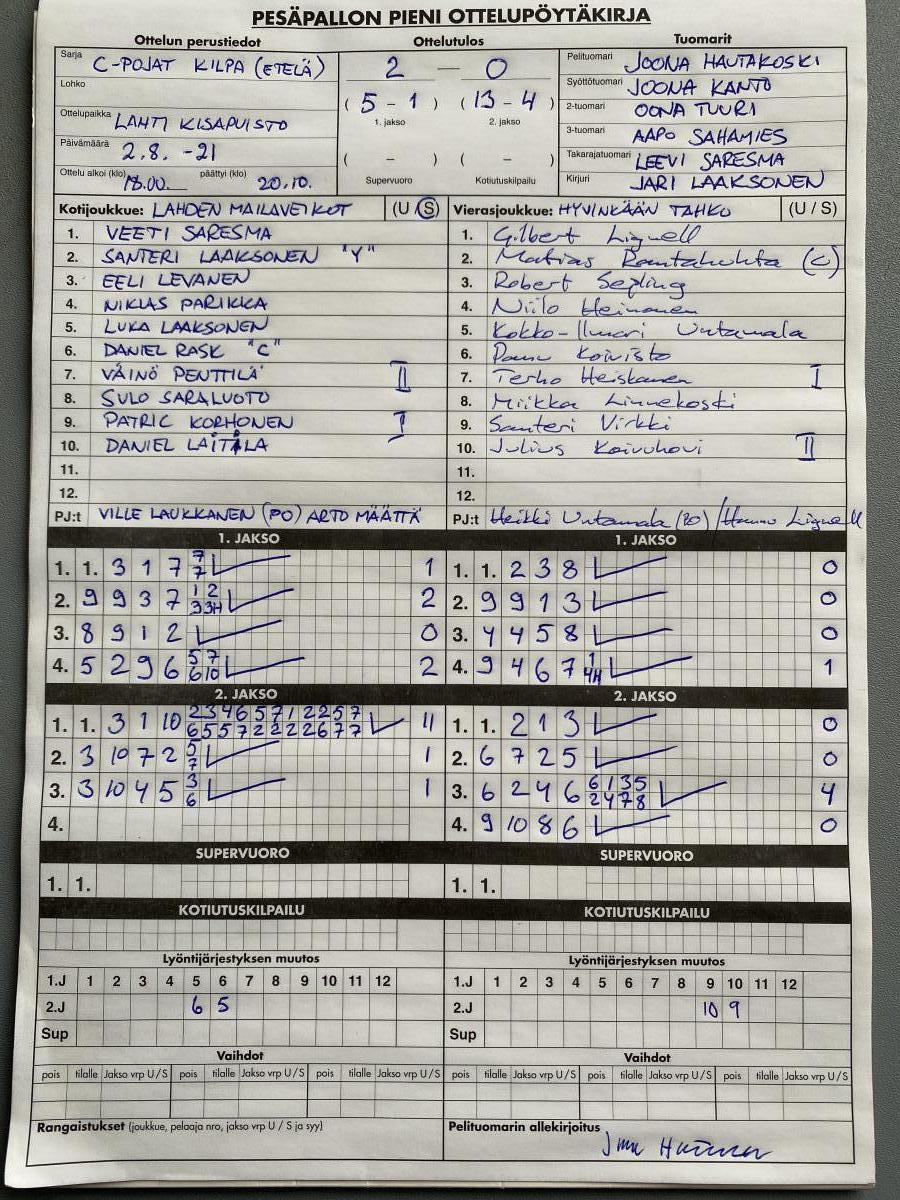 PESÄPALLON PIENI OTTELUPÖYTÄKIRJA
Ottelun perustiedot Ottelutulos Tuomarit
Sarja C-POJAT KILPA (ETELÄ) 2 — 0 Pelituomari JOONA HAUTAKOSKI
Lohko Syöttötuomari JOONA KANTO
( 5 - 1 ) ( 13 - 4 ) 2-tuomari OONA TUURI
Ottelupaikka LAHTI KISAPUISTO 1. jakso 2. jakso 3-tuomari AAPO SAHAMIES
Päivämäärä 2.8. -21 ( - ) ( - ) Takarajatuomari LEEVI SARESMA
Ottelu alkoi (klo) 18.00. päättyi (klo) 20.10. Supervuoro Kotiutuskilpailu Kirjuri JARI LAAKSONEN
Kotijoukkue: LAHDEN MAILAVEIKOT (U / S) Vierasjoukkue: HYVINKÄÄN TAHKO (U / S)
1. VEETI SARESMA 1. Gilbert Lignell
2. SANTERI LAAKSONEN "Y" 2. Matias Rantahuhta (C)
3. EELI LEVANEN 3. Robert Sepling
4. NIKLAS PARIKKA 4. Niilo Heinonen
5. LUKA LAAKSONEN 5. Kokko-Ilmari Untamala
6. DANIEL RASK "C" 6. Panu Koivisto
7. VÄINÖ PENTTILÄ II 7. Terho Heiskanen I
8. SULO SARALUOTO 8. Miikka Linnekoski
9. PATRIC KORHONEN I 9. Santeri Virkki
10. DANIEL LAITILA 10. Julius Koivuhovi II
11. 11.
12. 12.
PJ:t VILLE LAUKKANEN (PO) ARTO MÄÄTTÄ PJ:t Heikki Untamala (PO) / Hannu Lignell
1. JAKSO 1. JAKSO
1. 1. 3 1 7 7 7 1 1. 1. 2 3 8 0
2. 9 9 3 7 1 2 3 3H 2 2. 9 9 1 3 0
3. 8 9 1 2 0 3. 4 4 5 8 0
4. 5 2 9 6 5 7 6 10 2 4. 9 4 6 7 1 4H 1
2. JAKSO 2. JAKSO
1. 1. 3 1 10 2 3 4 6 5 7 1 2 2 5 7 6 5 5 7 2 2 2 2 6 7 7 11 1. 1. 2 1 3 0
2. 3 10 7 2 5 7 1 2. 6 7 2 5 0
3. 3 10 4 5 3 6 1 3. 6 2 4 6 6 1 3 5 2 4 7 8 4
4. 4. 9 10 8 6 0
SUPERVUORO SUPERVUORO
1. 1. 1. 1.
KOTIUTUSKILPAILU KOTIUTUSKILPAILU
Lyöntijärjestyksen muutos Lyöntijärjestyksen muutos
1.J 1 2 3 4 5 6 7 8 9 10 11 12 1.J 1 2 3 4 5 6 7 8 9 10 11 12
2.J 6 5 2.J 10 9
Sup Sup
Vaihdot Vaihdot
pois tilalle Jakso vrp U / S pois tilalle Jakso vrp U / S pois tilalle Jakso vrp U / S pois tilalle Jakso vrp U / S pois tilalle Jakso vrp U / S pois tilalle Jakso vrp U / S
Rangaistukset (joukkue, pelaaja nro, jakso vrp U / S ja syy) Pelituomarin allekirjoitus